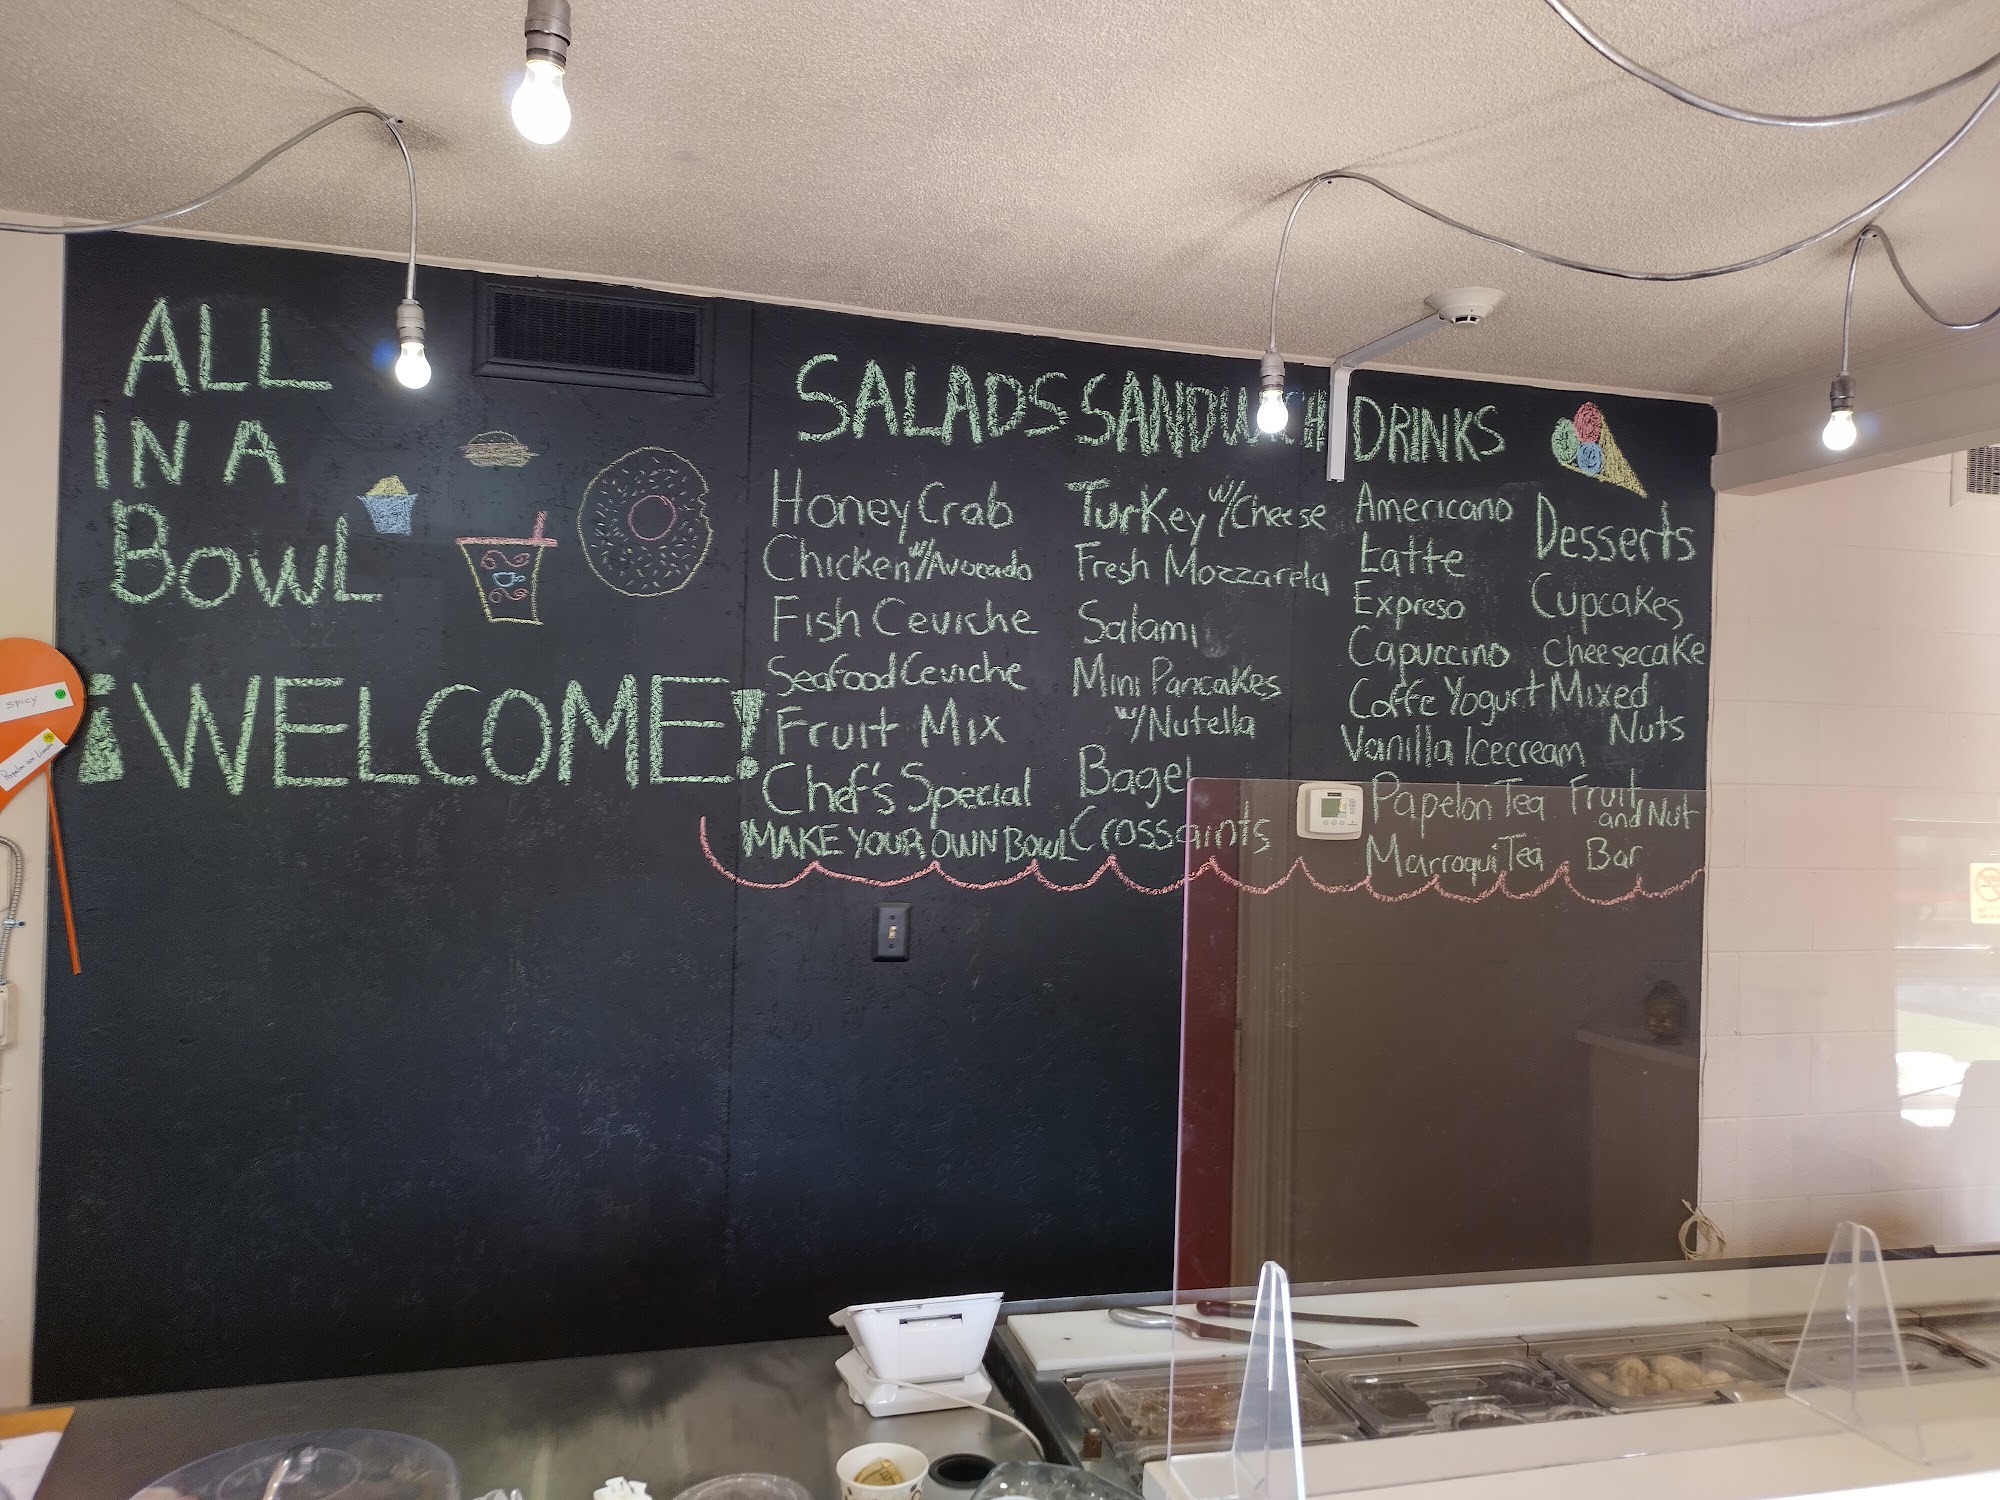 ALL
IN A
BOWL
¡WELCOME!
SALADS
Honey Crab
Chicken w/Avocado
Fish Ceviche
Seafood Ceviche
Fruit Mix
Chef's Special
MAKE YOUR OWN BOWL
SANDWICH
Turkey w/Cheese
Fresh Mozzarela
Salami
Mini Pancakes
w/Nutella
Bagel
Crossaints
DRINKS
Americano
Latte
Expreso
Capuccino
Coffe Yogurt
Vanilla Icecream
Papelon Tea
Marroqui Tea
Desserts
Cupcakes
Cheesecake
Mixed
Nuts
Fruit
and Nut
Bar
SPICY